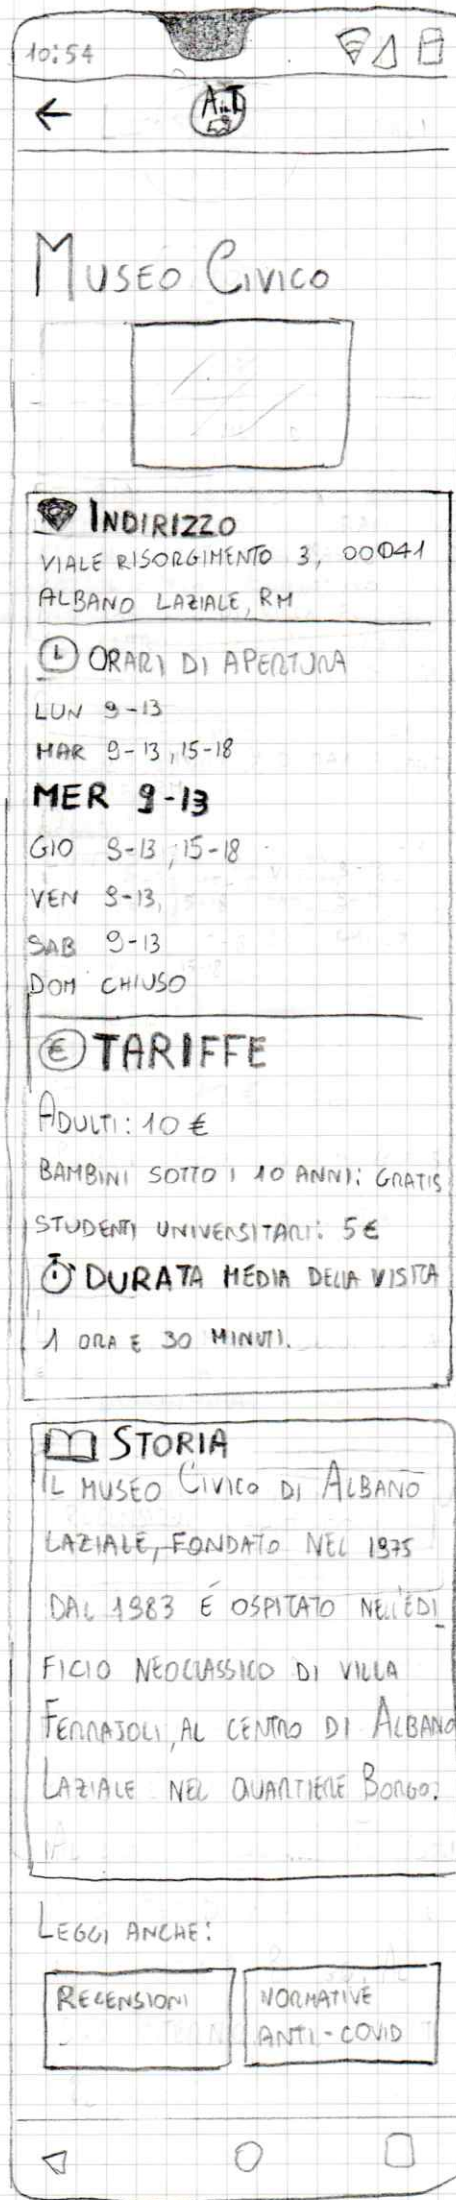 10:54
A.T
MUSEO CIVICO
INDIRIZZO
VIALE RISORGIMENTO 3, 00041
ALBANO LAZIALE, RM
ORARI DI APERTURA
LUN 9-13
MAR 9-13, 15-18
MER 9-13
GIO 9-13, 15-18
VEN 9-13,
SAB 9-13
DOM CHIUSO
€ TARIFFE
ADULTI: 10 €
BAMBINI SOTTO I 10 ANNI: GRATIS
STUDENTI UNIVERSITARI: 5€
DURATA MEDIA DELLA VISITA
1 ORA E 30 MINUTI.
STORIA
IL MUSEO CIVICO DI ALBANO
LAZIALE, FONDATO NEL 1975
DAL 1983 É OSPITATO NELL'EDI
FICIO NEOCLASSICO DI VILLA
FERRAJOLI, AL CENTRO DI ALBANO
LAZIALE NEL QUARTIERE BORGO.
LEGGI ANCHE:
RECENSIONI
NORMATIVE
ANTI-COVID